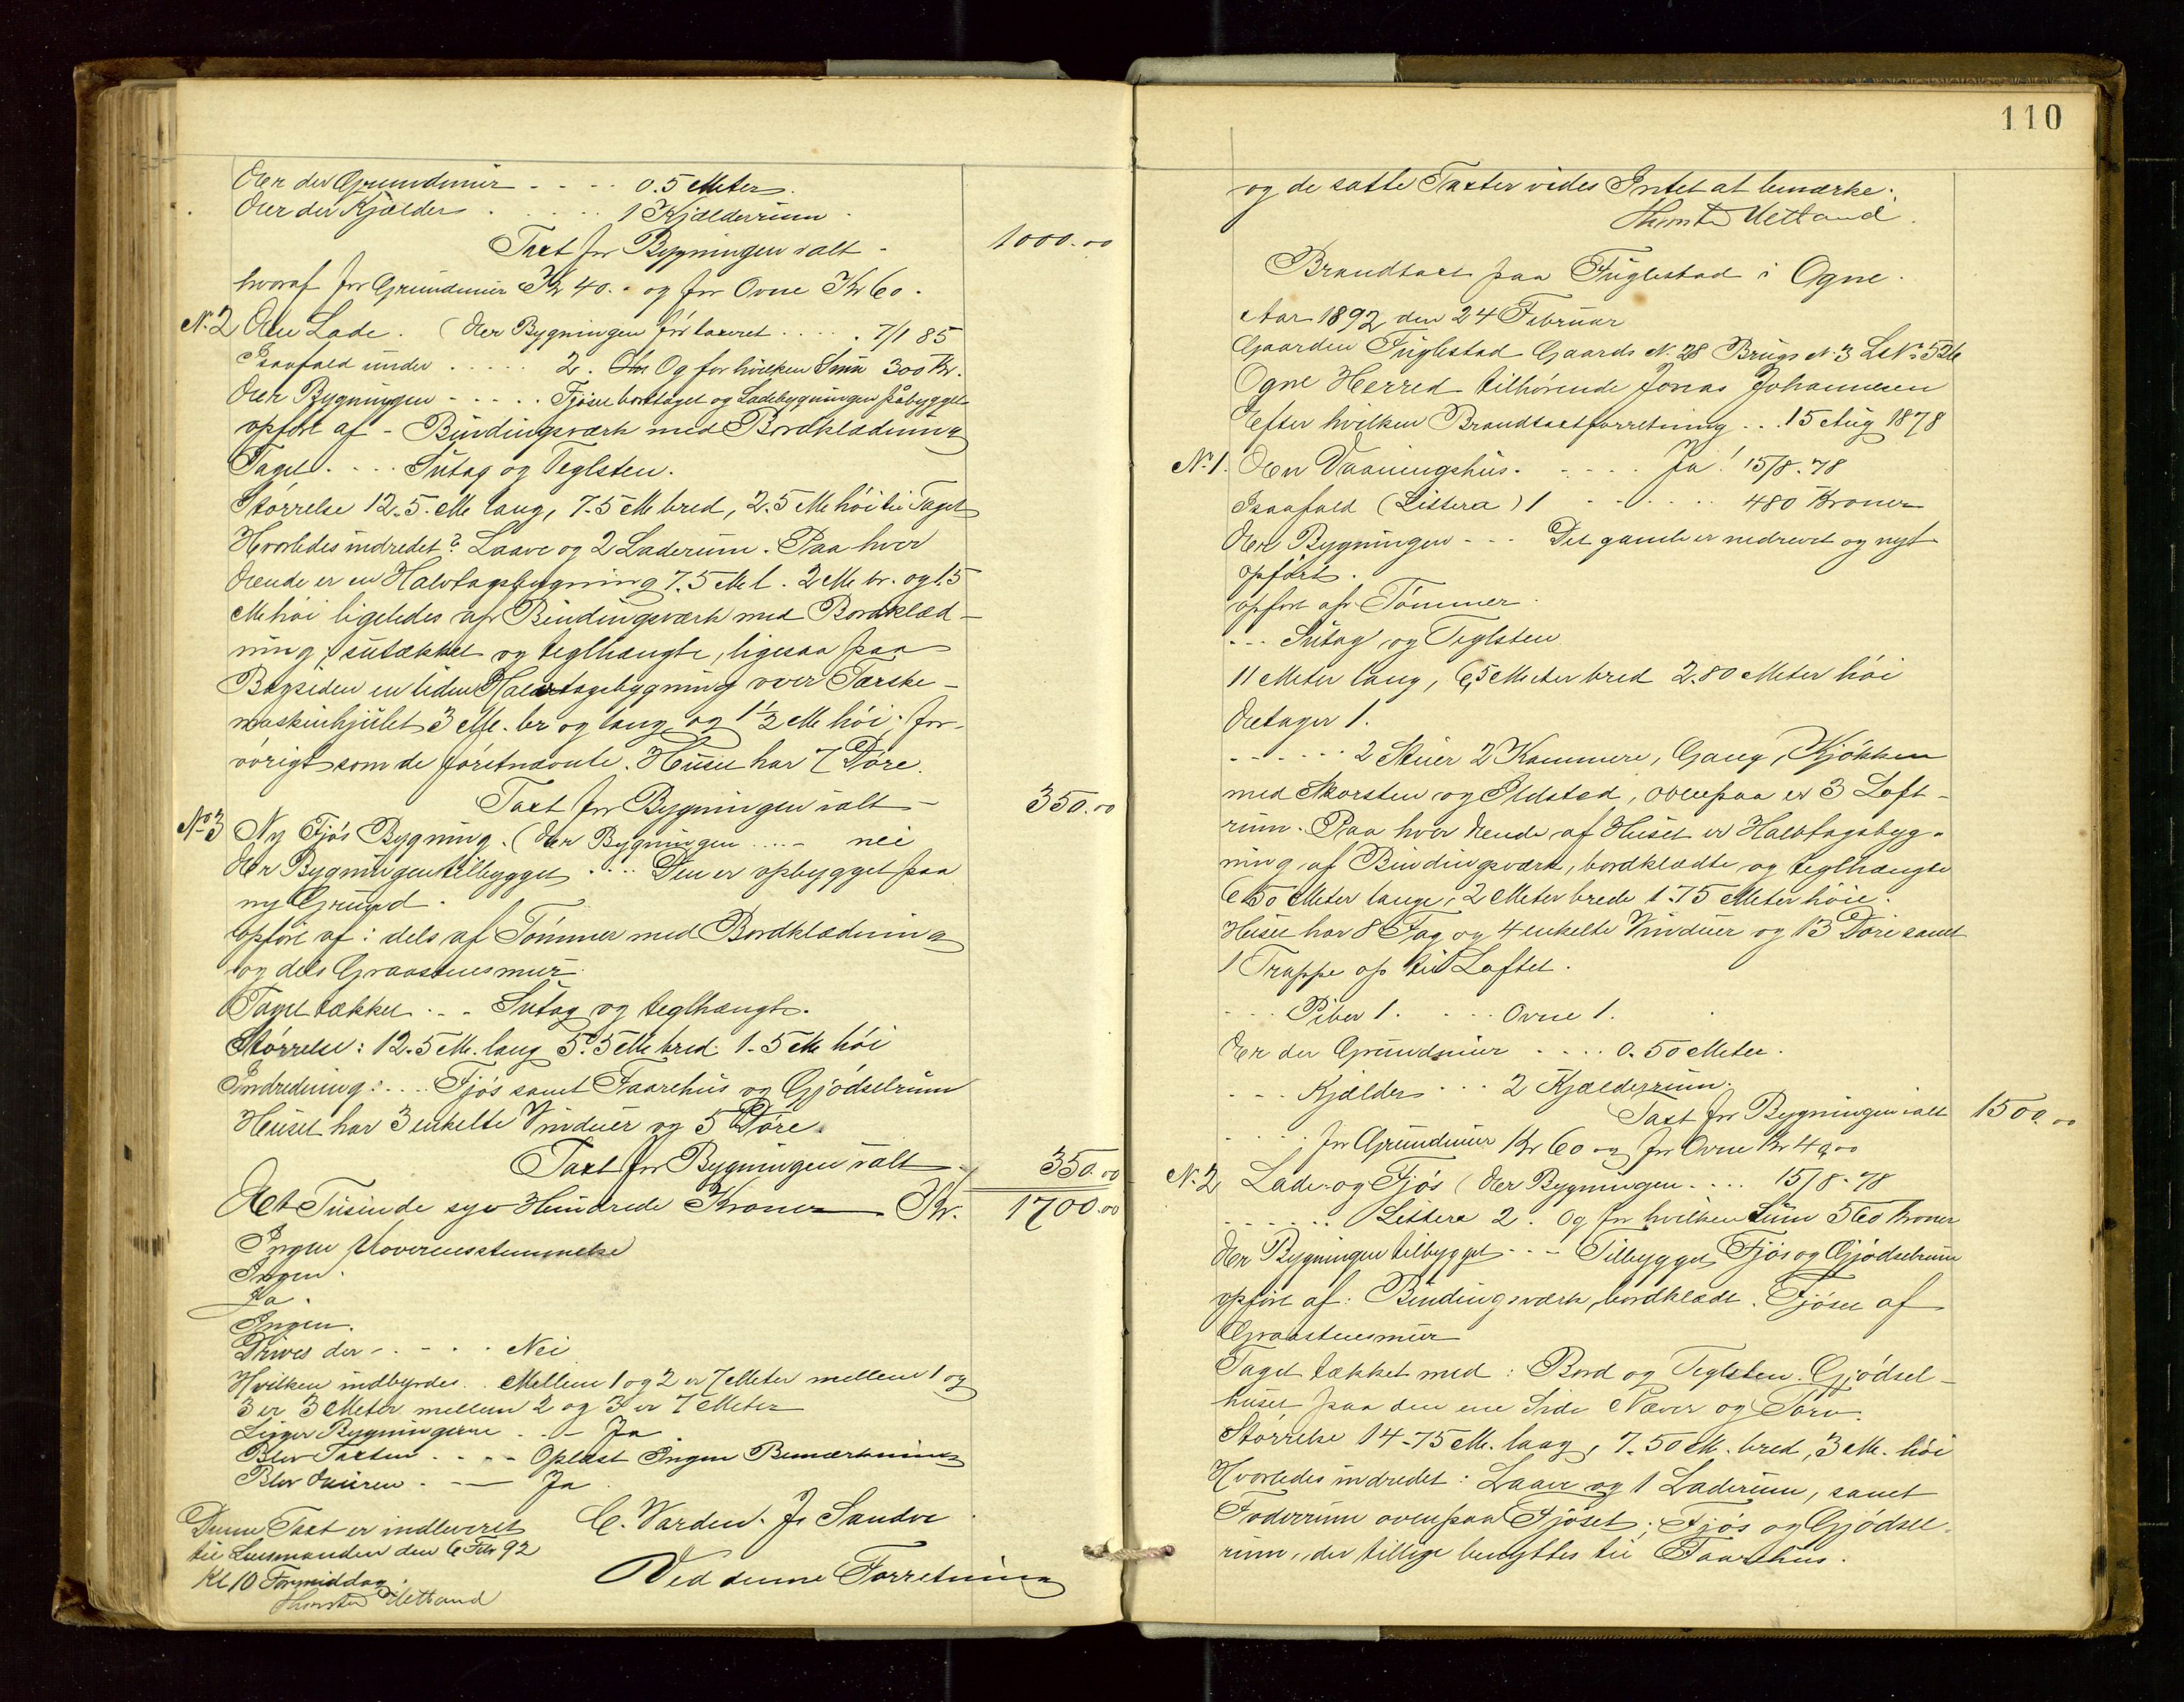 Er der Grundmur - - - - 0.5 Meter.
Er der Kjælder . . . . . 1 Kjælderrum.
Taxt for Bygningen ialt - 1000.00
hvoraf for Grundmur Kr 40.- og for Ovne Kr 60.
N. 2 Een Lade. (Er Bygningen før taxeret . . . . . 7/1 85
Isaafald under . . . . . 2. Og for hvilken Sum 300 Kr.
Er Bygningen - - - - . Fjøset borttaget og Ladebygningen påbygget
opført af - Bindingsværk med Bordklædning
Taget. . . . Sutag og Teglsten.
Størrelse 12.5. M lang, 7.5 M bred, 2.5 M høi til Taget
Hvorledes indredet? Laave og 2 Laderum. Paa hver
Ende er en Halvtagsbygning 7.5 M l. 2 M br. og 1.5
M høi ligeledes af Bindingsværk med Bordklæd-
ning, sutækket og teglhængte, ligesaa paa
Bagsiden en liden Halvtagsbygning over Tærske-
maskinhjulet 3 M. br og lang og 1 1/2 M høi. for-
vörigt som de förstnævnte. Huset har 7 Døre.
Taxt for Bygningen ialt - 350.00
No 3 Ny Fjøs Bygning. (Er Bygningen . . . . - nei
Er Bygningen tilbygget . . . . Den er opbygget paa
ny Grund.
opført af: dels af Tömmer med Bordklædning
og dels Graastensmur.
Taget tækket . . - Sutag og teglhængt.
Størrelse: 12.5 M. lang 5.5 M bred 1.5 M høi
Indredning: . . . . Fjøs samt Faarehus og Gjødselrum
Huset har 3 enkelte Vinduer og 5 Døre.
Taxt for Bygningen ialt 350.00
Et Tusinde syv Hundrede Kroner Kr. 1700.00
Ingen Uoverensstemmelse
Ingen.
Ja.
Ingen.
Drives der - . - . . Nei
Hvilken indbyrdes . . Mellem 1 og 2 er 7 Meter mellem 1 og
3 er 3 Meter mellem 2 og 3 er 7 Meter
Ligger Bygningerne . . - Ja
Blev Taxten . . - - Oplæst Ingen Bemærkning
Blev Eieren . - — Ja
Denne Taxt er indleveret C. Varden. J. Sandve
til Lensmanden den 6 Febr 92
Kl 10 Formiddag. Ved denne Forretning
Thorsten Uelland
110
og de satte Taxter vides Intet at bemærke.
Thorsten Uelland.
Brandtaxt paa Fuglestad i Ogne.
Aar 1892 den 24 Februar
Gaarden Fuglestad Gaards N. 28 Brugs N. 3 L. No 52b
Ogne Herred tilhørende Jonas Johannesen
Efter hvilken Brandtaxtforretning . . . 15 Aug 1878
No 1. Een Vaaningshus. - - . . . Ja! 15/8. 78
Isaafald (Littera) 1 - - - . . . . 480 Kroner
Er Bygningen - - - Det gamle er nedrevet og nyt
opført.
opført af Tömmer
- - - Sutag og Teglsten
11 Meter lang, 6,5 Meter bred 2.80 Meter høi
Etager 1.
- - - - - - 2 Stuer 2 Kammere, Gang, Kjøkken
med Skorsten og Ildsted, ovenpaa er 3 Loft-
rum. Paa hver Ende af Huset er Halvtagsbyg-
ning af Bindingsværk, bordklædte og teglhængte
6.50 Meter lange, 2 Meter brede 1.75 Meter høie.
Huset har 8 Fag og 4 enkelte Vinduer og 13 Døre samt
1 Trappe op til Loftet.
- - - Piber 1. . . . Ovne 1.
Er der Grundmur . . . . 0.50 Meter.
- - - Kjælder . . . 2 Kjælderrum.
Taxt for Bygningen ialt 1500.00
- . . . for Grundmur Kr 60 og for Ovne Kr 40,00
N. 2 Lade og Fjøs (Er Bygningen . . . . 15/8. 78
- - - - - - Littera 2. Og for hvilken Sum 560 Kroner
Er Bygningen tilbygget - - - Tilbygget Fjøs og Gjødselrum
opført af: Bindingsværk, bordklædt. Fjøset af
Graastensmur
Taget tækket med: Bord og Teglsten. Gjødsel-
huset paa den ene Side Næver og Torv.
Størrelse 14.75 M. lang, 7.50 M. bred, 3 M. høi
Hvorledes indredet: Laave og 1 Laderum, samt
Foderrum ovenpaa Fjøset; Fjøs og Gjødsel-
rum, der tillige benyttes til Faarehus.